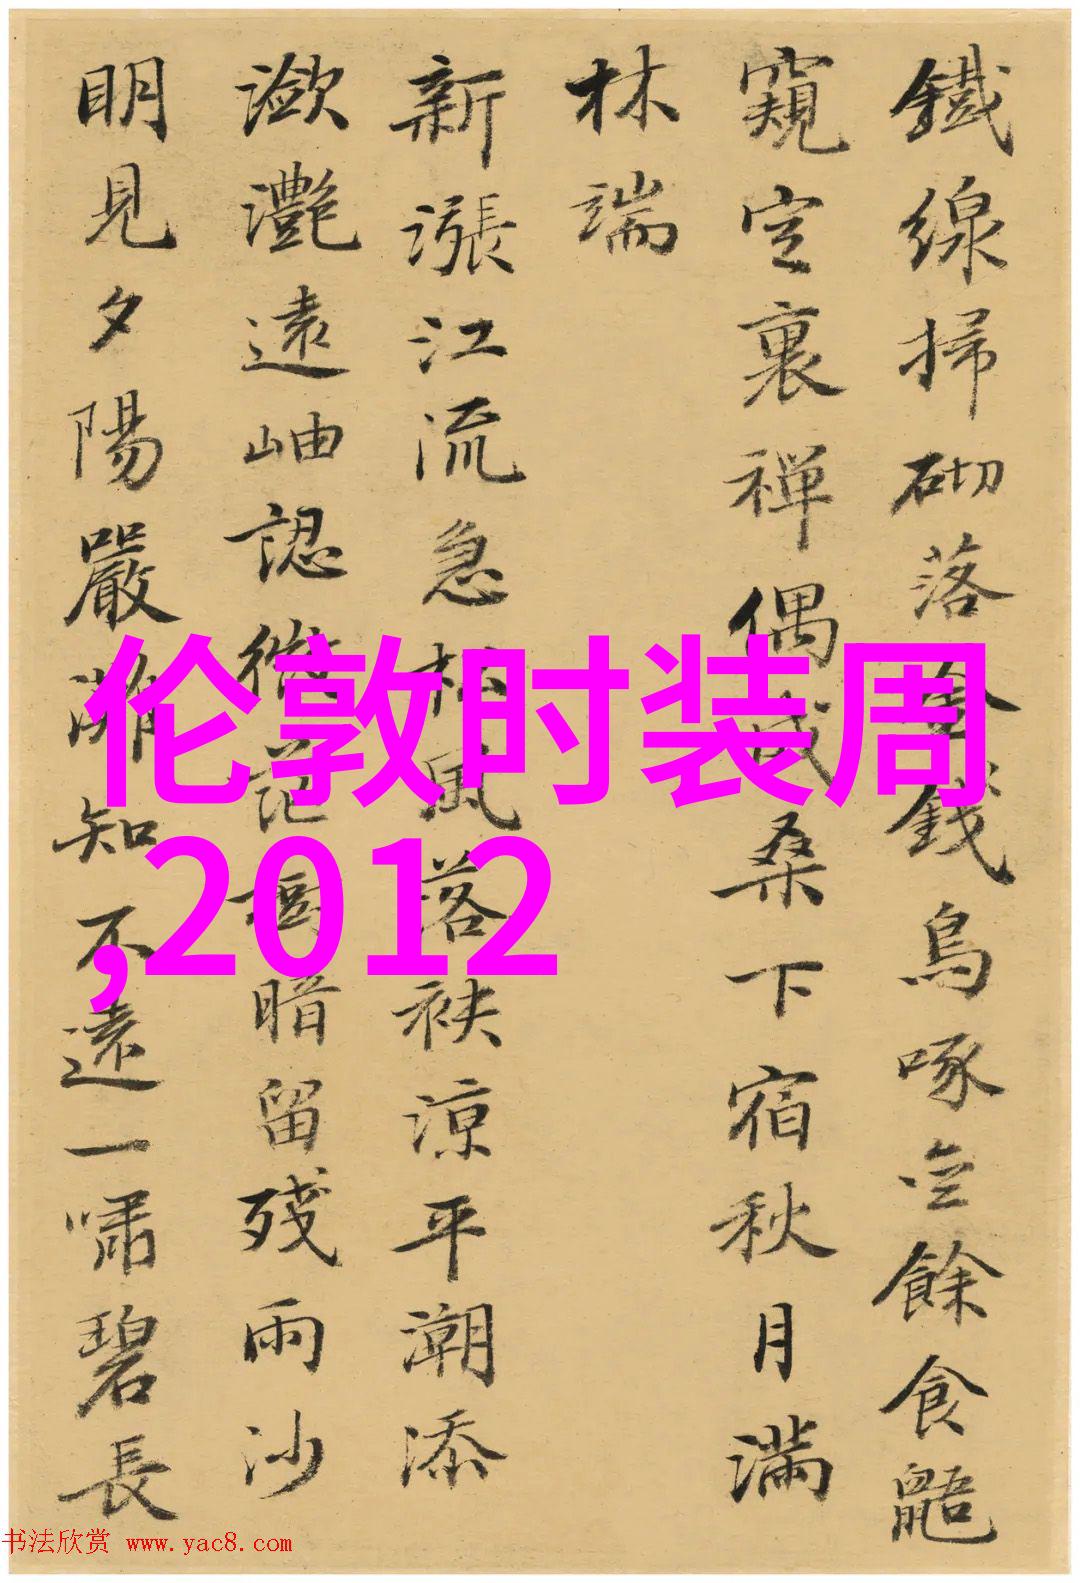 鐵線掃砌落金錢鳥啄空餘食鼯
窺空裏禅偶成桑下宿秋月滿
林端
新漲江流急松風落袂涼平潮添
瀲灔遠岫認微茫樹暗留殘雨沙
明見夕陽嚴灘知不遠一嘯碧長
伦敦时装周
,2012
书法欣赏 www.yac8.com